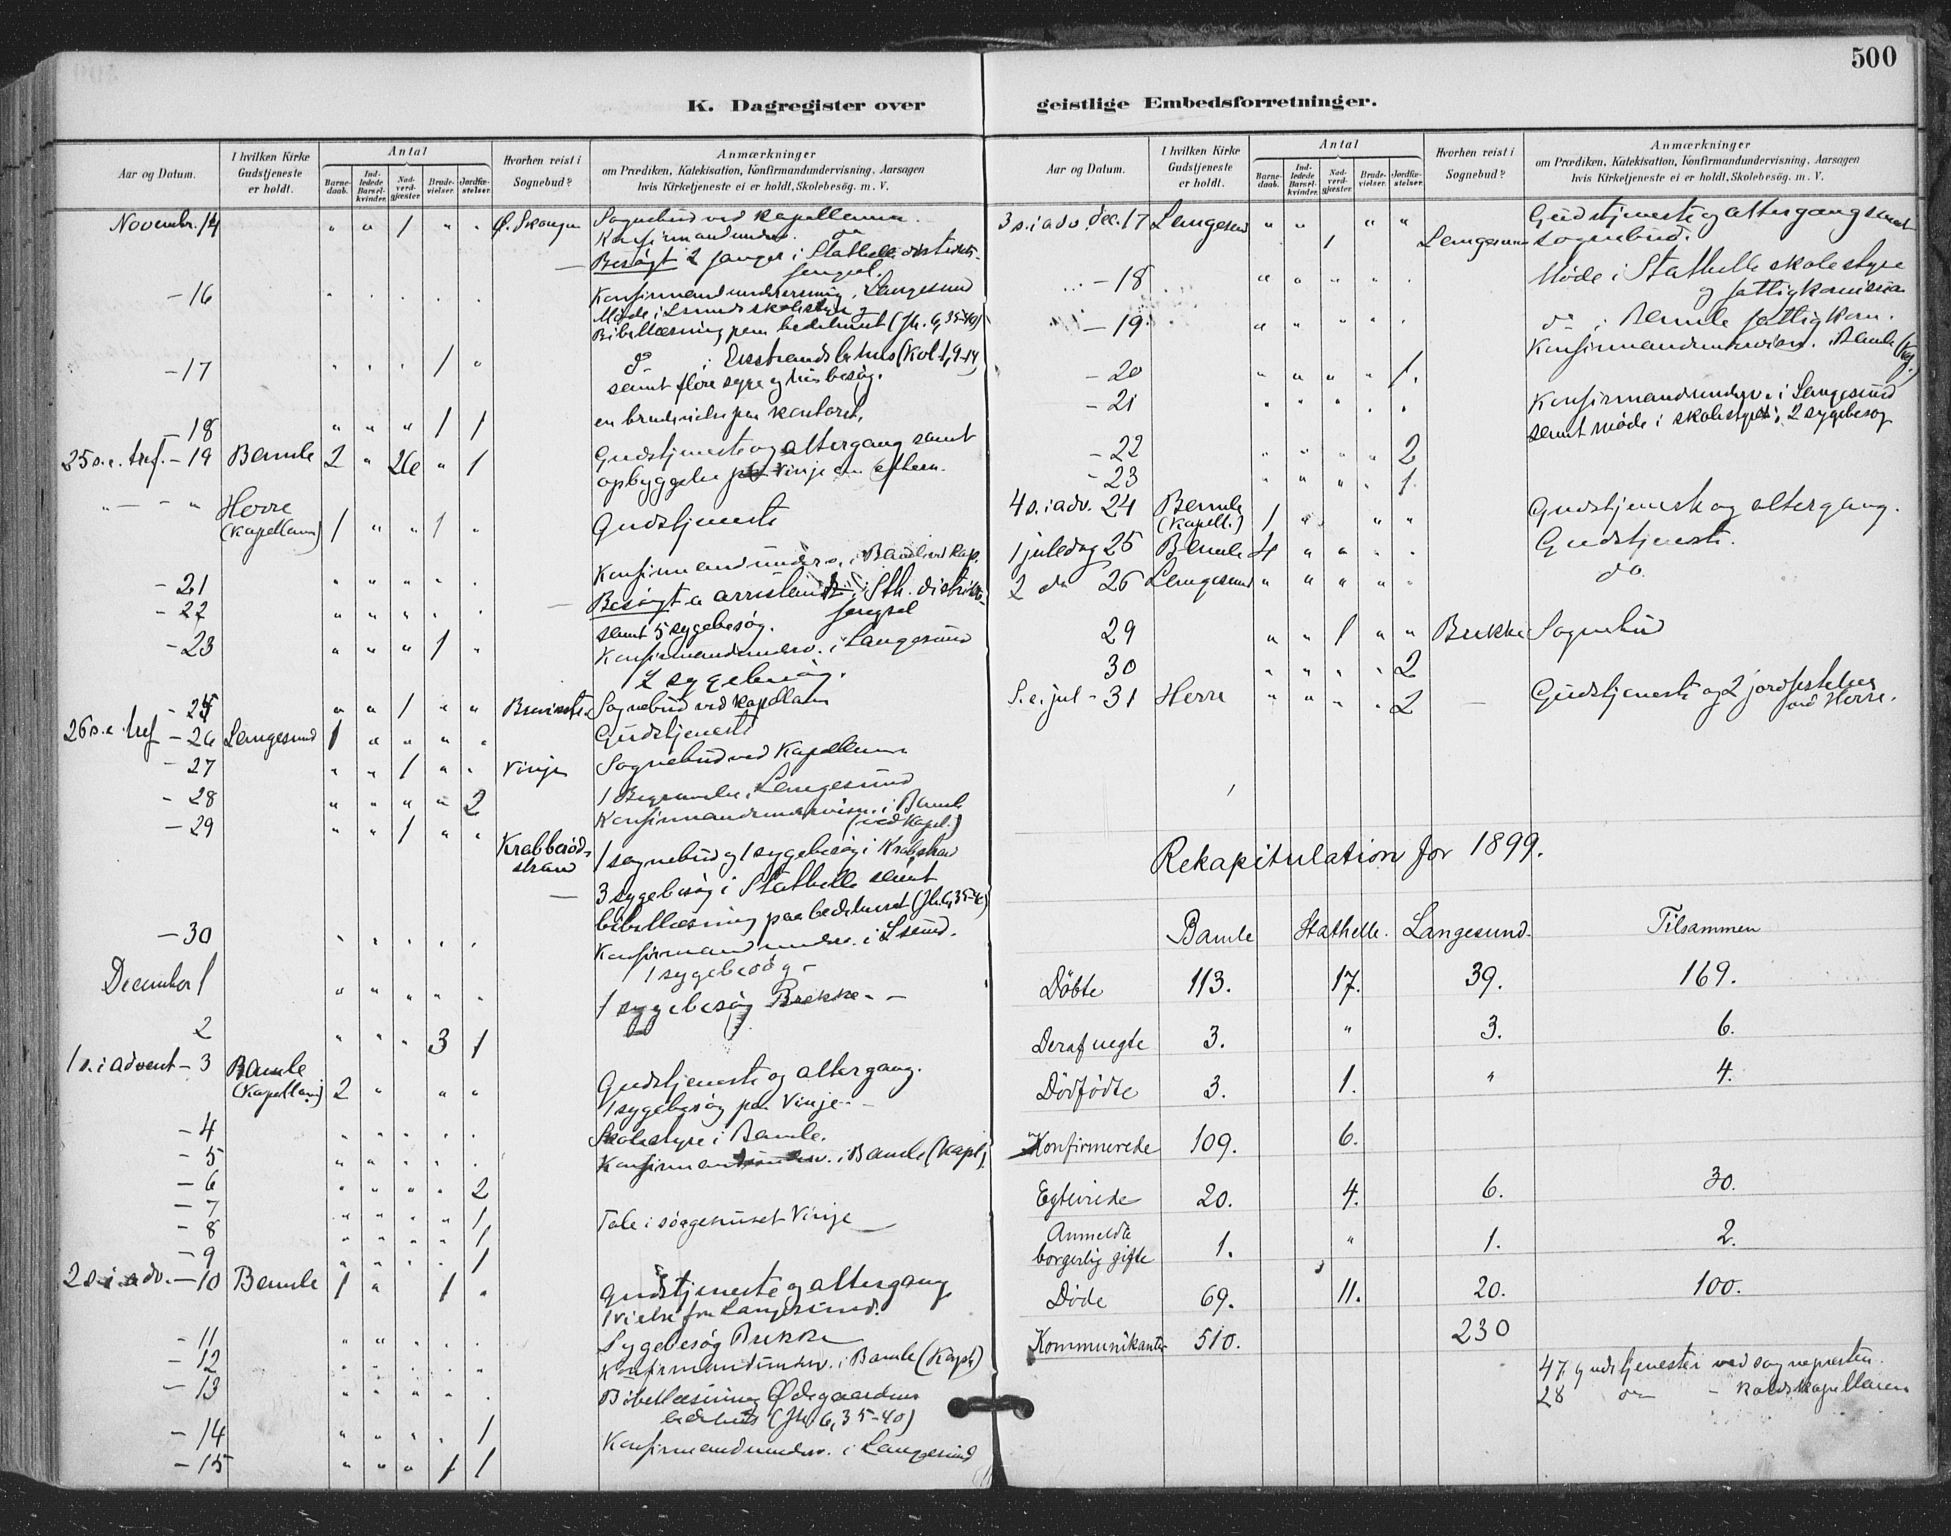 500
K. Dagregister over
geistlige Embedsforretninger.
Aar og Datum.
I hvilken Kirke Gudstjeneste er holdt.
Antal
Barne- daab.
Ind- ledede Barsel- kvinder.
Nad- verd- gjæster.
Brude- vielser.
Jordfæ- stelser.
Hvorhen reist i Sognebud?
Anmærkninger
om Prædiken, Katekisation, Konfirmandundervisning, Aarsagen
hvis Kirketjeneste ei er holdt, Skolebesög. m. V.
Novembr. 14 " " 1 " " Sognebud ved Kapellanen.
Besögt 2 fanger i Stathelle
fengsel.
- 16 Konfirmandundervisning, Langesund
Bibellæsning paa bedehuset (Jh. 6, 35-40)
- 17 1 " (Kol. 1, 9-14)
samt flere syge og husbesög.
- 18 " " " 1 1 en brudevielse paa kontoret.
25 s. e. tref. - 19 Bamle 2 " 26 " 1 Gudstjeneste og altergang samt
opbyggelse Vinje em eftern.
" - " Herre
(Kapellanen) 1 " " 1 " Gudstjeneste
Konfirmandunderv. i Bamle ved Kap.
- 21 " " " " "
- 22 " " " " " Besögt i Sth. distrikts-
fengsel
samt 5 sygebesög.
- 23 " " " 1 " Konfirmandunderv. i Langesund
2 sygebesög.
- 25 " " 1 " " Sognebud ved Kapellan
26 s. e. tref - 26 Langesund 1 " " " " Gudstjeneste
- 27 " " 1 " " Vinje Sognebud ved Kapellanen
- 28 " " " " 2 1 Begravelse, Langesund
Konfirmandundervisn. i Bamle
(ved Kapel.)
- 29 " " 1 " " Krabberöd-
strand 1 sognebud og 1 sygebesög i Krabstrand
3 sygebesög i Stathelle samt
bibellæsning paa bedehuset (Jh. 6, 35-40)
- 30 Konfirmandunderv. i Lsund.
1 sygebesög -
December 1 " " " " " 1 sygebesög Brekke -
2 " " " 3 1
1 s. i advent - 3 Bamle
(Kapellanen) 2 " " " Gudstjeneste og altergang.
1 sygebesög paa Vinje -
- 4 Skolestyre i Bamle.
- 5 Konfirmandunderv. i Bamle (Kapl)
- 6 " " " " 2
- 7 " " " " 1 Tale i sörgehuset Vinje
- 8 " " " " 1
- 9 " " " " 1
2 s. i adv. - 10 Bamle 1 " 1 " Gudstjeneste og altergang
1 vielse fra Langesund.
- 11 Sygebesög Brekke
- 12 Konfirmandunderv. i Bamle (Kapl)
- 13 Bibellæsning Ödegaardens
bedehus (Jh. 6, 35-40)
- 14 " " " " 1 Konfirmandunderv. i Langesund
- 15 " " " 1 1
Aar og Datum.
I hvilken Kirke Gudstjeneste er holdt.
Antal
Barne- daab.
Ind- ledede Barsel- kvinder.
Nad- verd- gjæster.
Brude- vielser.
Jordfæ- stelser.
Hvorhen reist i Sognebud?
Anmærkninger
om Prædiken, Katekisation, Konfirmandundervisning, Aarsagen
hvis Kirketjeneste ei er holdt, Skolebesög. m. V.
3 s. i adv. Dec. 17 Langesund " " 1 " " Langesund Gudstjeneste og altergang samt
sognebud.
- 18 Möde i Stathelle skolestyre
og fattigkomission
- 19 do i Bamle fattigkom.
Konfirmandundervisn. i Bamle (Kap.)
- 20 " " " " 1.
- 21 " " " " " Konfirmandunderv. i Langesund
samt möde i skolestyret; 2 sygebesög
- 22 " " " " 2
- 23 " " " " 1.
4 s. i adv. 24 Bamle
(Kapell.) 1 " " " Gudstjeneste og altergang.
1 juledag 25 Bamle 4 " " " " Gudstjeneste.
2 do 26 Langesund " " " " " do.
29 " " 1 " " Brekke Sognebud
30 " " " " 2
S. e. jul - 31 Herre " " " " 2 - Gudstjeneste og 2 jordfestelser
ved Herre.
Rekapitulation for 1899.
Bamle Stathelle. Langesund. Tilsammen
Döbte 113. 17. 39. 169.
Deraf uegte 3. " 3. 6.
Dödfödte 3. 1. " 4.
Konfirmerede 109. 6.
Egteviede 20. 4. 6. 30.
Anmeldte
borgerlig gifte 1. " 1. 2.
Döde 69. 11. 20. 100.
Kommunikanter 510. 230
47 gudstjenester ved sognepresten.
28 do - kaldskapellanen